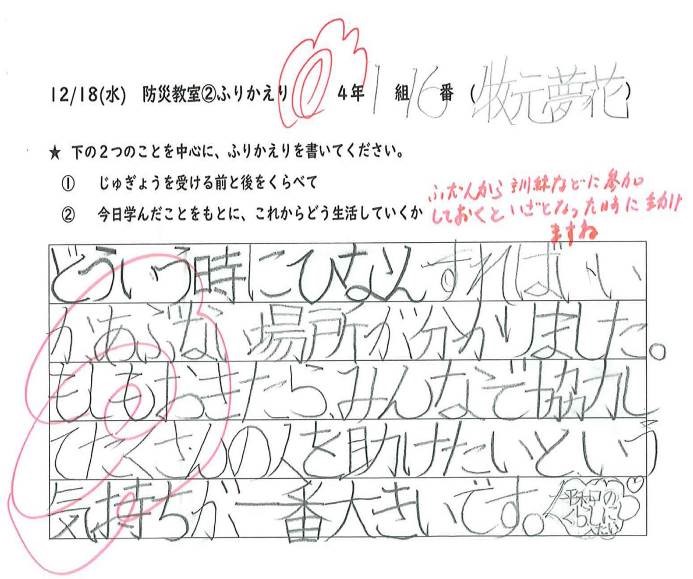 12/18(水) 防災教室②ふりかえり 4年 1 組 16 番 (牧元夢花)
★ 下の2つのことを中心に、ふりかえりを書いてください。
① じゅぎょうを受ける前と後をくらべて
② 今日学んだことをもとに、これからどう生活していくか
ふだんから訓練などに参加
しておくといざとなった時に動け
ますね
どういう時にひなんすればいい
か、あぶない場所が分かりました。
もしもおきたら、みんなで協力し
てたくさんの人を助けたいという
気持ちが一番大きいです。
くらしに